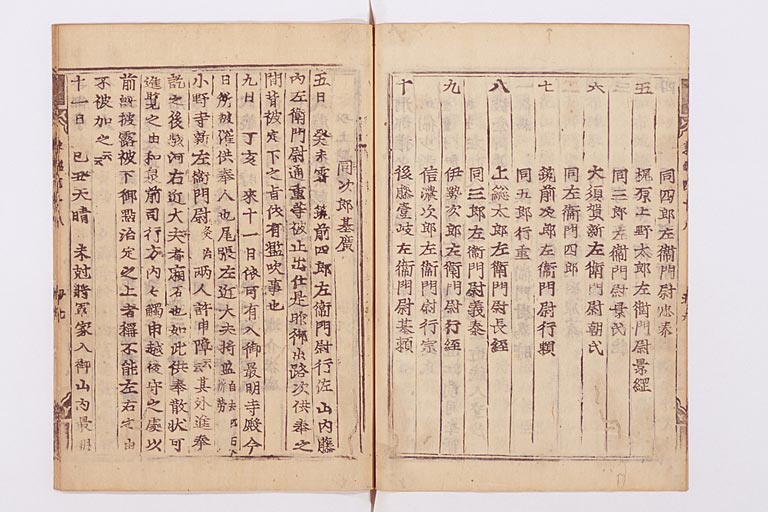 五　同四郎左衞門尉忠泰
梶原上野太郎左衞門尉景經
同三郎左衞門尉景氏
六　大須賀新左衞門尉朝氏
同左衞門四郎
七　筑前次郎左衞門尉行頼
同五郎行重
八　上総太郎左衞門尉長經
同三郎左衞門尉義泰
九　伊勢次郎左衞門尉行經
信濃次郎左衞門尉行宗
十　後藤壹岐左衞門尉基頼
同次郎基廣
五日　癸未霽　筑前四郎左衞門尉行佐　山內藤
內左衞門尉通重等被止出仕是昨御出路次供奉之
間背被定下之旨依有濫吹事也
九日　丁亥　來十一日依可有入御最明寺殿今
日所被催供奉人也尾張左近大夫將監
小野寺新左衞門尉灸治兩人許申障云云其外進奉
訖之後駿河右近大夫者　如此供奉散狀可
進覽之由和泉前司行方內々觸申越後守之處以
前披露被下御點治定之上者稱不能左右定由
不被加之云云
十一日　己丑天晴　未尅將軍家入御山內最明